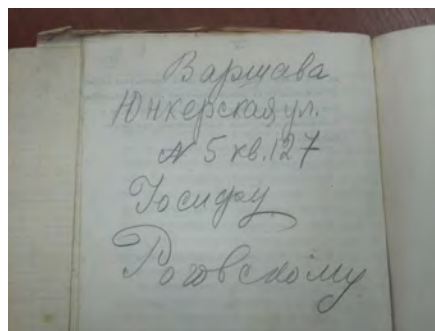 Варшава
Юнкерская ул.
№ 5 кв. 127
Іосифу
Роговскому